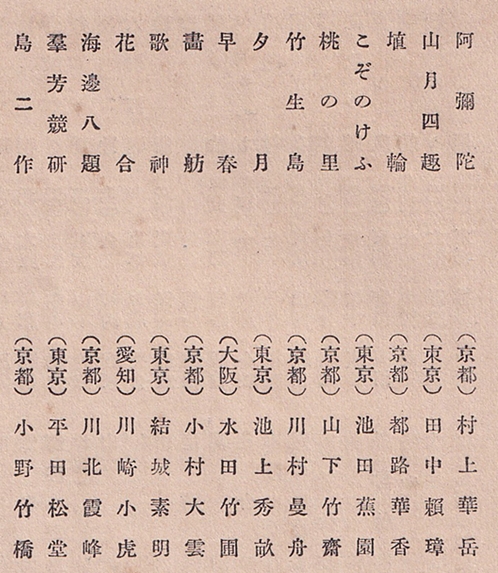 阿彌陀（京都）村上華岳
山月四趣（東京）田中賴璋
埴輪（京都）都路華香
こぞのけふ（東京）池田蕉園
桃の里（京都）山下竹齋
竹生島（京都）川村曼舟
夕月（東京）池上秀畝
早春（大阪）水田竹圃
畫舫（京都）小村大雲
歌神（東京）結城素明
花合（愛知）川崎小虎
海邊八題（京都）川北霞峰
羣芳競研（東京）平田松堂
島二作（京都）小野竹橋